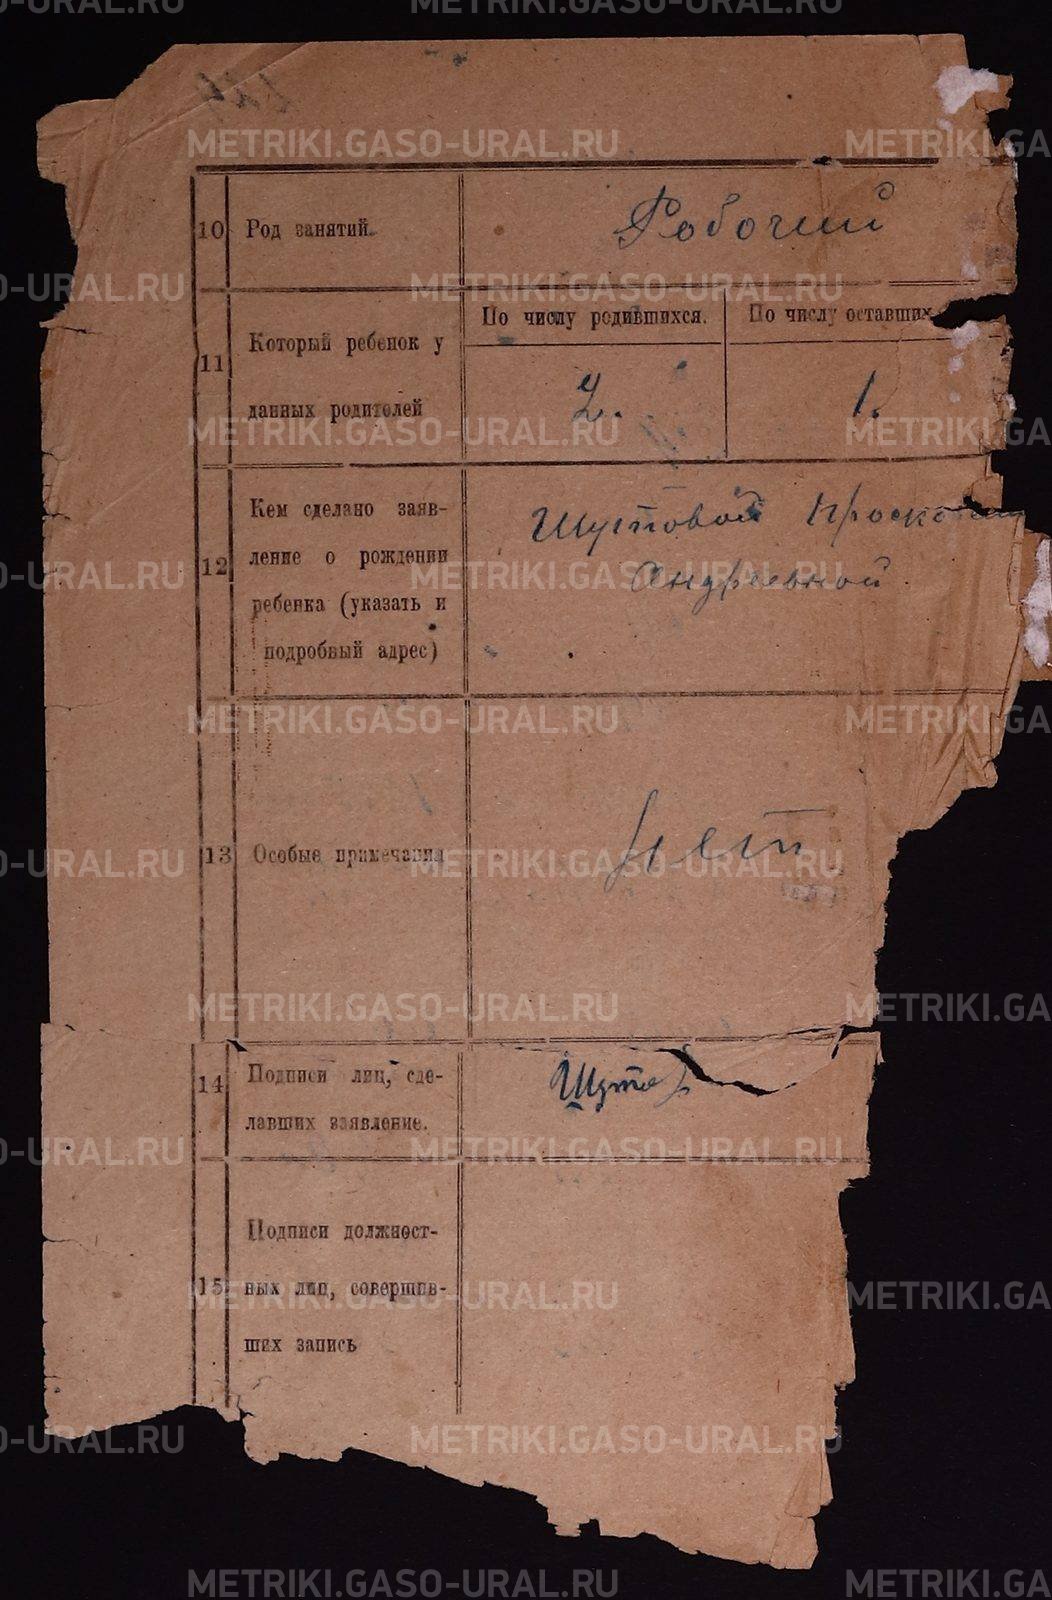 10 Род занятий. Робочий
11 Который ребенок у данных родителей
По числу родившихся. По числу оставших
2. 1.
12 Кем сделано заяв-
ление о рождении
ребенка (указать и
подробный адрес)
Шустовой
Андреевной
13 Особые примечания Нет
14 Подписи лиц, сде-
лавших заявление.
15 Подписи должност-
ных лиц, совершив-
ших запись
METRIKI.GASO-URAL.RU